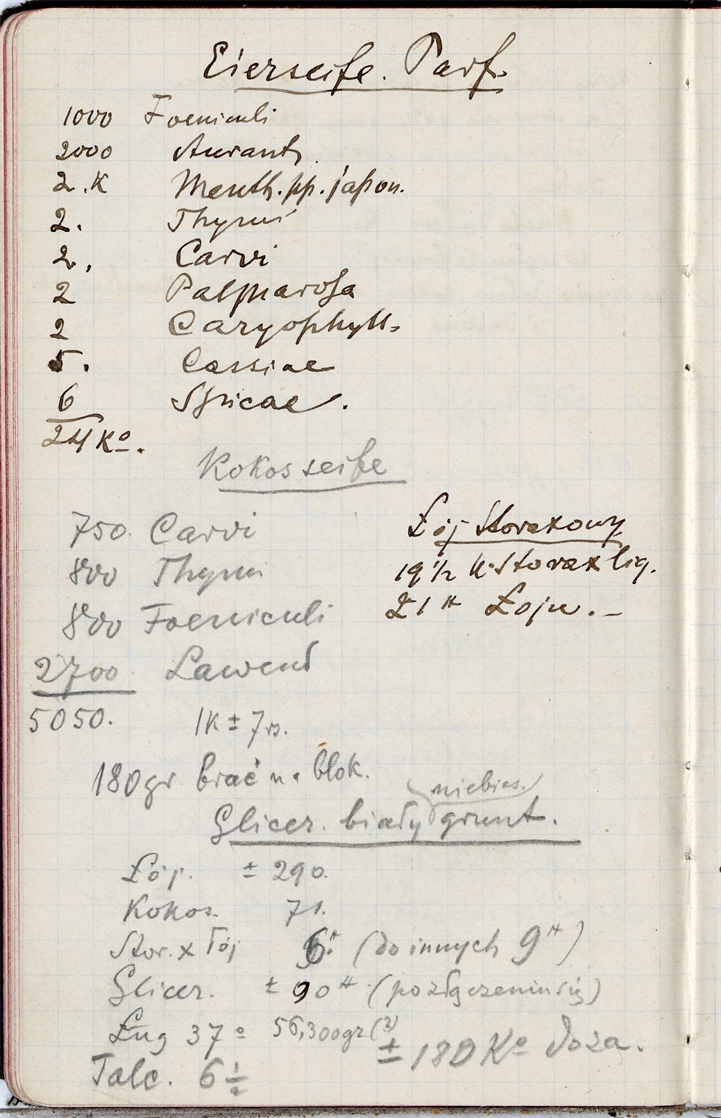 Eierseife. Parf.
1000 Foeniculi
2000 Aurant.
2.K Menth.pp.japon.
2. Thymi
2. Carvi
2 Palmarosa
2 Caryophyll.
5. Cassiae
6 Spicae.
24 Ko.
Kokosseife
750. Carvi
800 Thymi
800 Foeniculi
2700 Lawend
5050. 1K ± 7
180gr brać na blok.
Łój Storaxowy
19 1/2 Storax liq.
21 Łoju.
niebies.
Glicer. biały grunt.
Łój. ± 290.
Kokos. 71.
Stor.x Łój 6. (do innych 9)
Glicer. ± 90 (po złączeniu się)
Ług 37º 56,300gr(?)
± 180 Ko doza.
Talc. 6 1/2